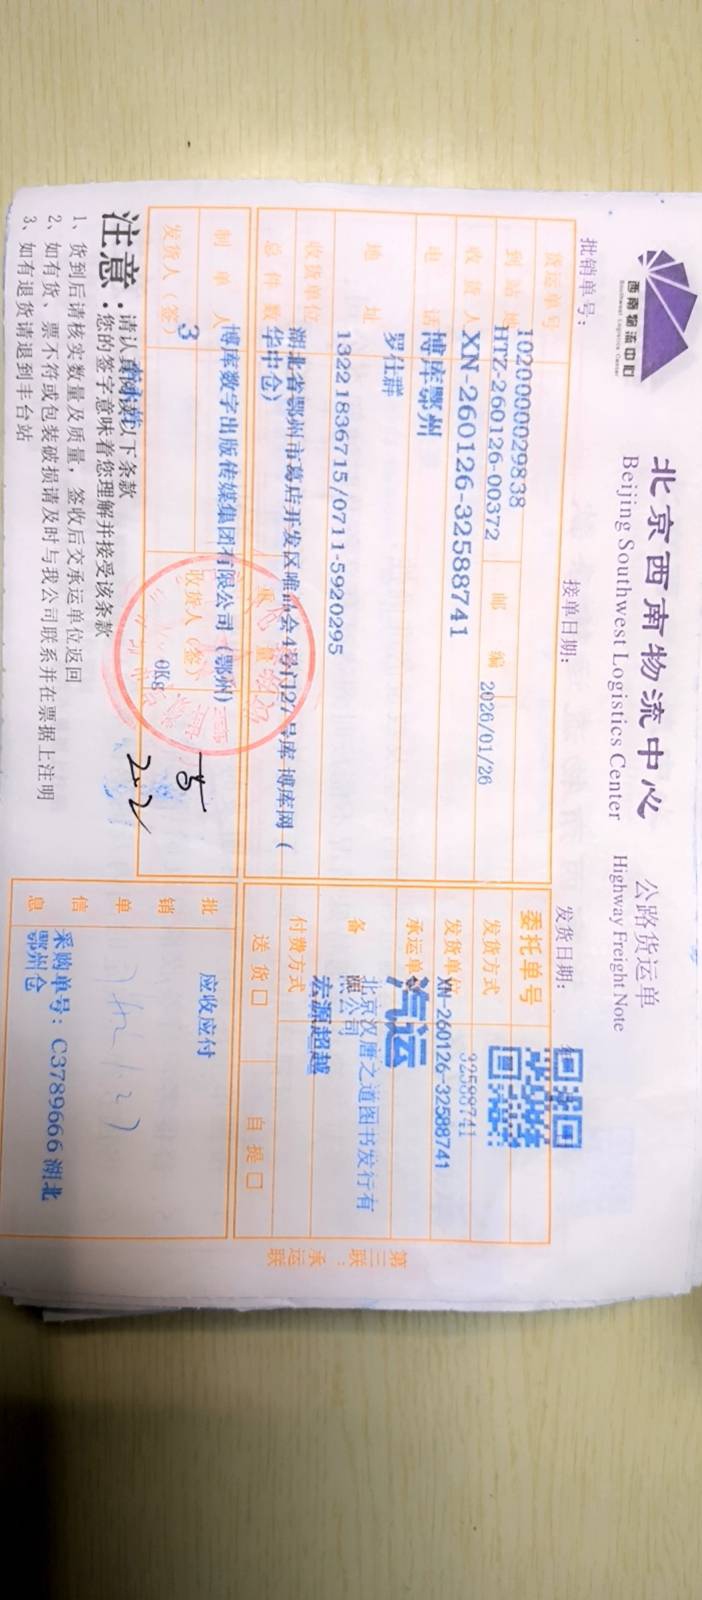 西南物流中心
Southwest Logistics Center
北京西南物流中心
公路货运单
Beijing Southwest Logistics Center
Highway Freight Note
批销单号：
接单日期：
发货日期：
货运单号
1020000029838
到站地
HTZ-260126-00372
邮编
2026/01/26
收货人
XN-260126-32588741
电话
博库鄂州
地址
罗仕群
13221836715/0711-5920295
收货单位
湖北省鄂州市葛店开发区唯品会4号门27号库 博库网（
总件数
华中仓)
制单人
博库数字出版传媒集团有限公司（鄂州）
发货人（签）
3
收货人（签）
0Kg
委托单号
发货方式
32588741
发货单位
XN-260126-32588741
承运单位
汽运
备
北京汉唐之道图书发行有
限公司
付费方式
宏源超越
送货□
自提□
批销单信息
应收应付
采购单号：C3789666 湖北
鄂州仓
第三联：承运联
注意：
请认真阅读以下条款
您的签字意味着您理解并接受该条款
1、货到后请核实数量及质量，签收后交承运单位返回
2、如有货、票不符或包装破损请及时与我公司联系并在票据上注明
3、如有退货请退到丰台站